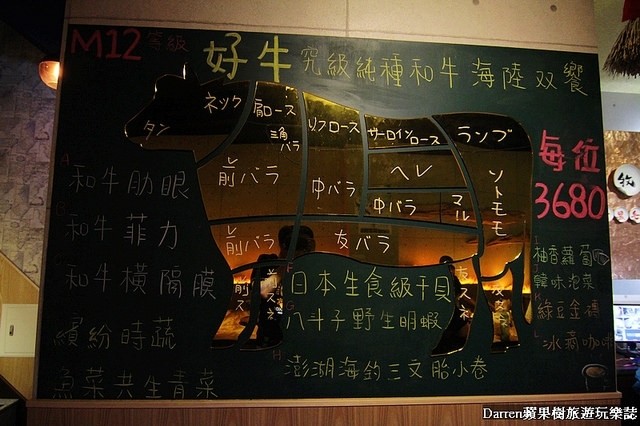 M12 等級 好牛 究級純種和牛海陸双饗
ネック
肩ロース
三角バラ
リブロース
サーロインロース
ランプ
タン
前バラ
中バラ
ヘレ
中バラ
マル
ソトモモ
前バラ
友バラ
前ズネ
和牛肋眼
和牛菲力
和牛橫隔膜
繽紛時蔬
魚菜共生青菜
日本生食級干貝
八斗子野生明蝦
澎湖海釣三文胎小卷
每位
3680
柚香蘿蔔
韓味泡菜
綠豆金磚
冰滴咖啡
牧
Darren蘋果樹旅遊玩樂誌